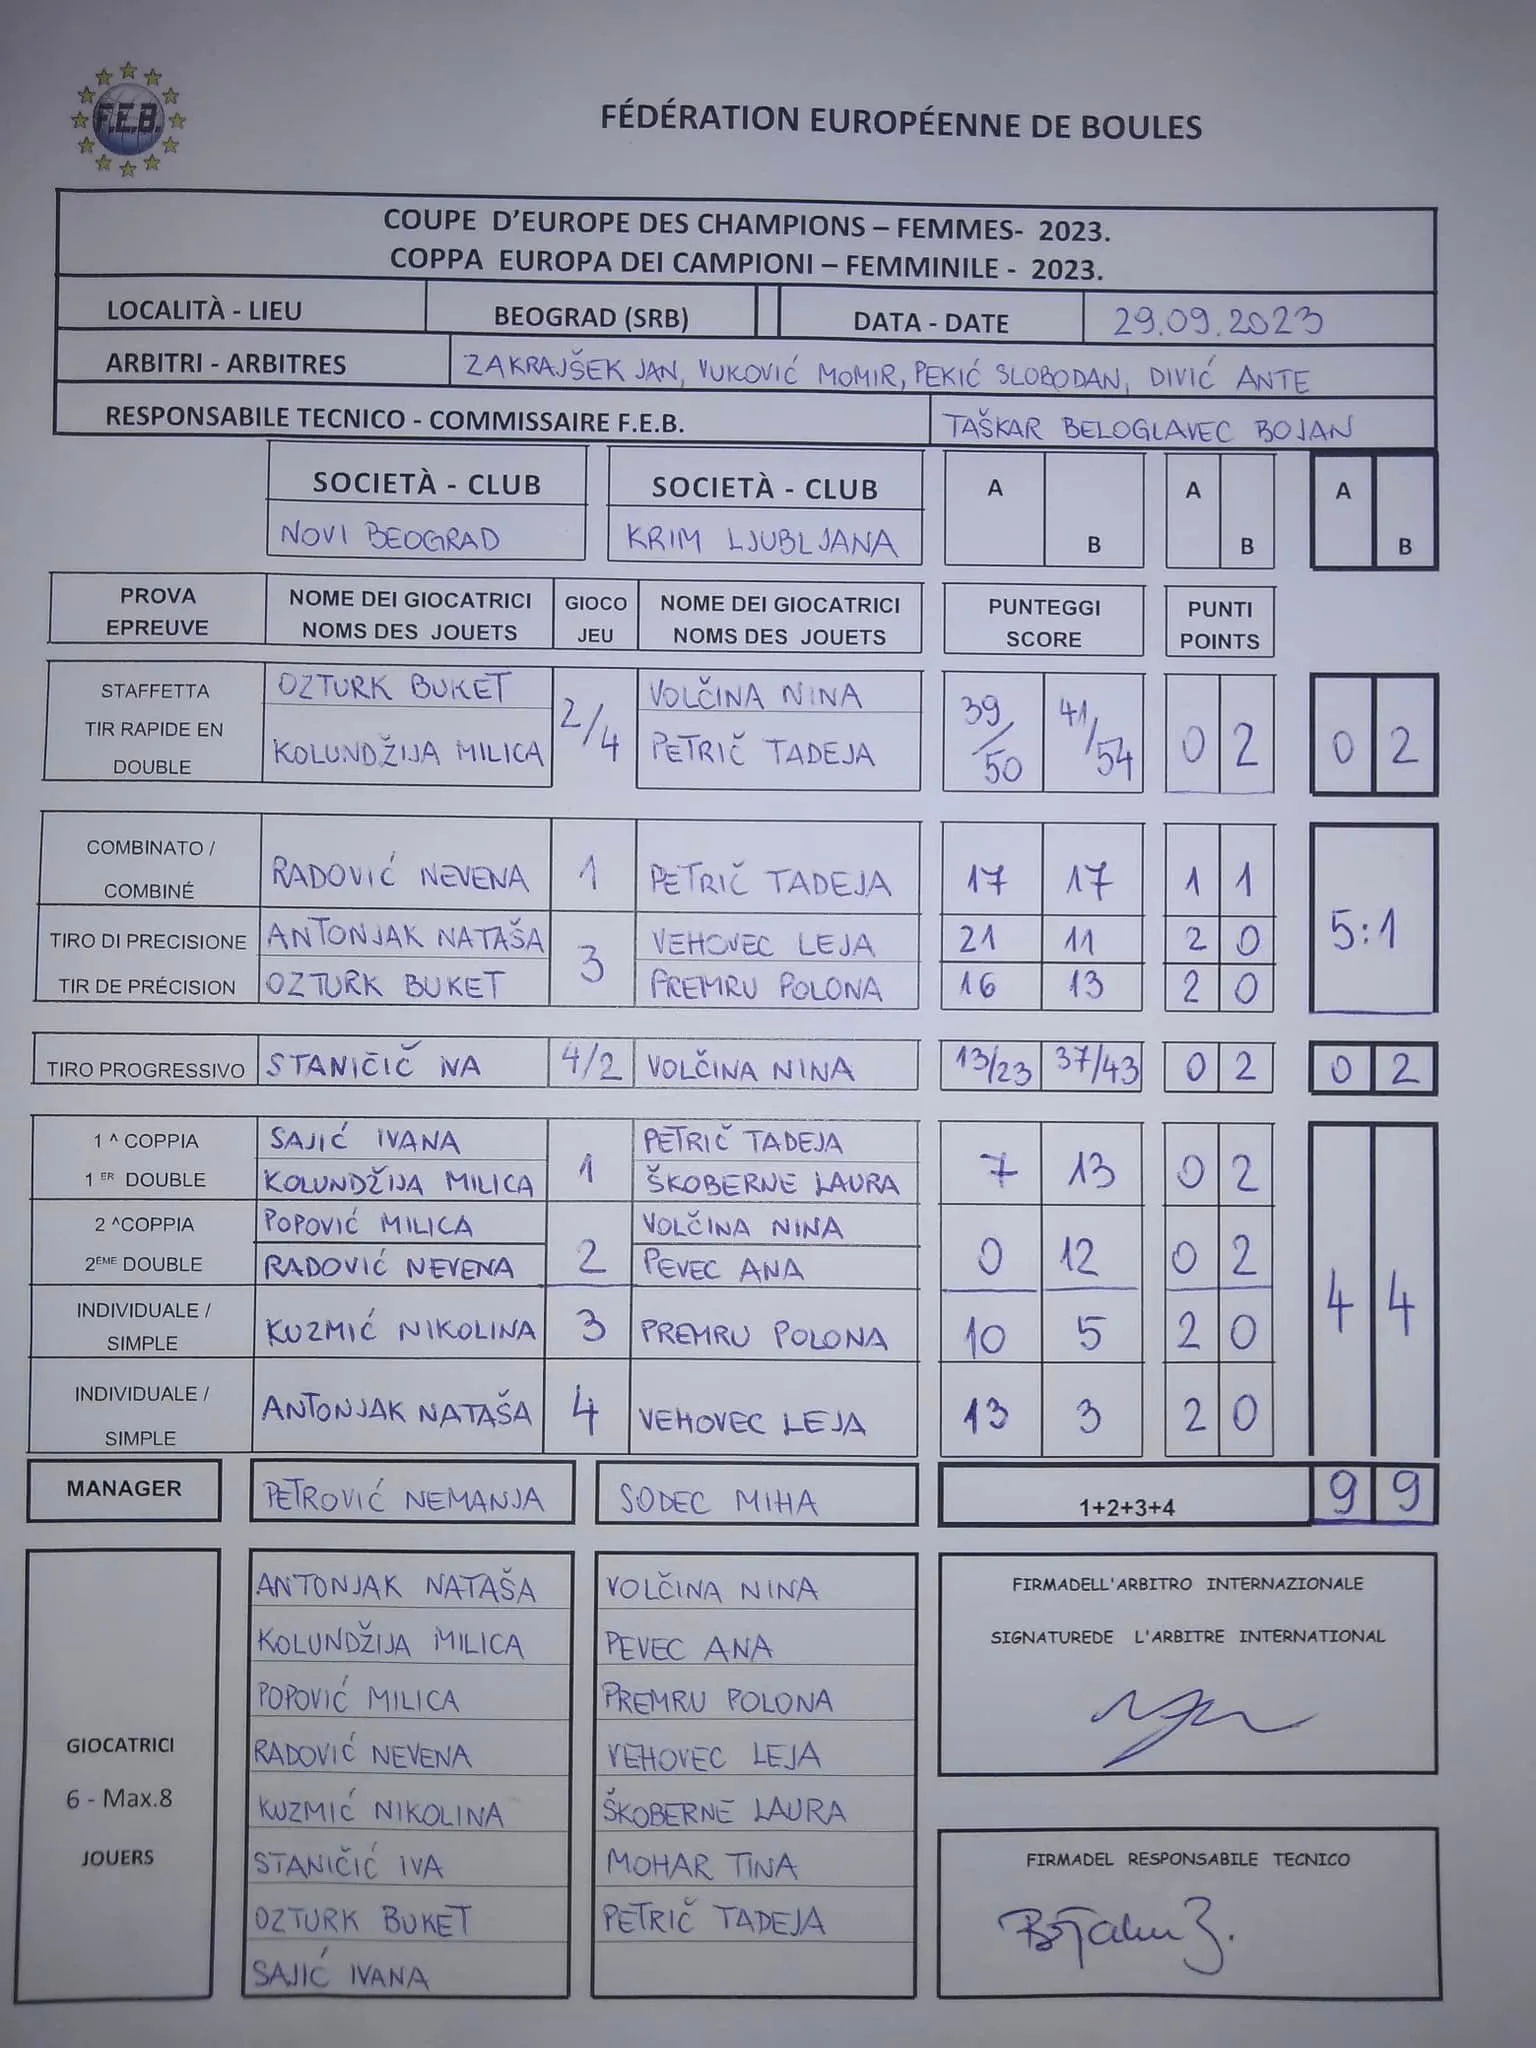 F.E.B.
FÉDÉRATION EUROPÉENNE DE BOULES
COUPE D'EUROPE DES CHAMPIONS – FEMMES- 2023.
COPPA EUROPA DEI CAMPIONI – FEMMINILE - 2023.
LOCALITÀ - LIEU BEOGRAD (SRB) DATA - DATE 29.09.2023
ARBITRI - ARBITRES ZAKRAJŠEK JAN, VUKOVIĆ MOMIR, PEKIĆ SLOBODAN, DIVIĆ ANTE
RESPONSABILE TECNICO - COMMISSAIRE F.E.B. TAŠKAR BELOGLAVEC BOJAN
SOCIETÀ - CLUB SOCIETÀ - CLUB A A A
NOVI BEOGRAD KRIM LJUBLJANA B B B
PROVA NOME DEI GIOCATRICI GIOCO NOME DEI GIOCATRICI PUNTEGGI PUNTI
EPREUVE NOMS DES JOUETS JEU NOMS DES JOUETS SCORE POINTS
STAFFETTA OZTURK BUKET VOLČINA NINA
TIR RAPIDE EN 2/4 39/50 41/54 0 2 0 2
DOUBLE KOLUNDŽIJA MILICA PETRIČ TADEJA
COMBINATO /
COMBINÉ RADOVIĆ NEVENA 1 PETRIČ TADEJA 17 17 1 1
TIRO DI PRECISIONE ANTONJAK NATAŠA 3 VEHOVEC LEJA 21 11 2 0 5:1
TIR DE PRÉCISION OZTURK BUKET PREMRU POLONA 16 13 2 0
TIRO PROGRESSIVO STANIČIČ IVA 4/2 VOLČINA NINA 13/23 37/43 0 2 0 2
1 ^ COPPIA SAJIĆ IVANA 1 PETRIČ TADEJA 7 13 0 2
1 ER DOUBLE KOLUNDŽIJA MILICA ŠKOBERNE LAURA
2 ^COPPIA POPOVIĆ MILICA 2 VOLČINA NINA 0 12 0 2
2ÈME DOUBLE RADOVIĆ NEVENA PEVEC ANA
INDIVIDUALE / 4 4
SIMPLE KUZMIĆ NIKOLINA 3 PREMRU POLONA 10 5 2 0
INDIVIDUALE /
SIMPLE ANTONJAK NATAŠA 4 VEHOVEC LEJA 13 3 2 0
MANAGER PETROVIĆ NEMANJA SODEC MIHA 1+2+3+4 9 9
GIOCATRICI
6 - Max.8
JOUERS
ANTONJAK NATAŠA
KOLUNDŽIJA MILICA
POPOVIĆ MILICA
RADOVIĆ NEVENA
KUZMIĆ NIKOLINA
STANIČIĆ IVA
OZTURK BUKET
SAJIĆ IVANA
VOLČINA NINA
PEVEC ANA
PREMRU POLONA
VEHOVEC LEJA
ŠKOBERNE LAURA
MOHAR TINA
PETRIČ TADEJA
FIRMADELL'ARBITRO INTERNAZIONALE
SIGNATUREDE L'ARBITRE INTERNATIONAL
FIRMADEL RESPONSABILE TECNICO